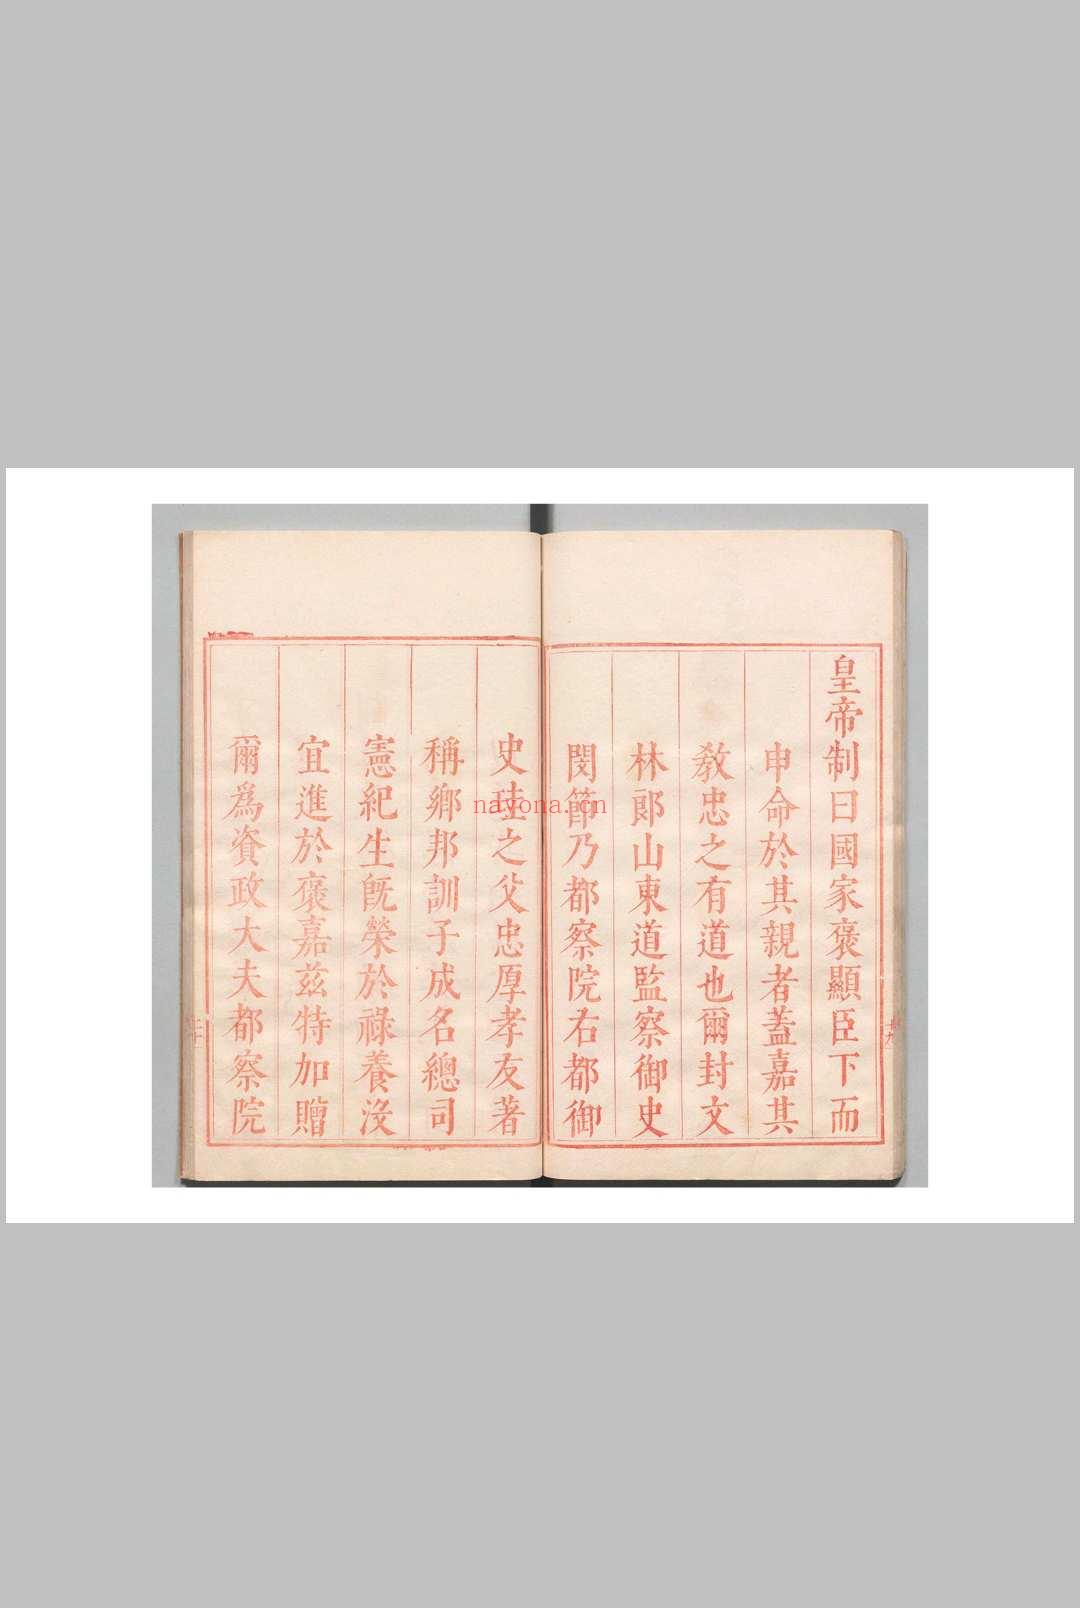 皇帝制曰國家褒顯臣下而
申命於其親者蓋嘉其
敎忠之有道也爾封文
林郎山東道監察御史
閔節乃都察院右都御
史珪之父忠厚孝友著
稱鄉邦訓子成名總司
憲紀生旣榮於祿養沒
宜進於褒嘉茲特加贈
爾爲資政大夫都察院
nayona.cn